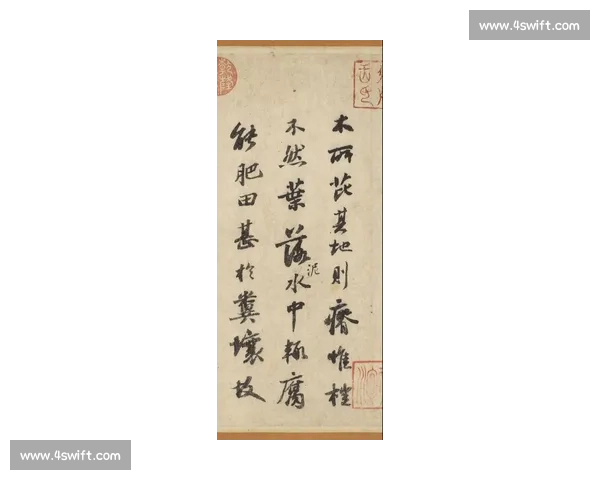 www.4swift.com
木所芘其地則瘠惟榿
不然葉落泥水中輒腐
能肥田甚於糞壤故
www.4swift.com
www.4swift.com